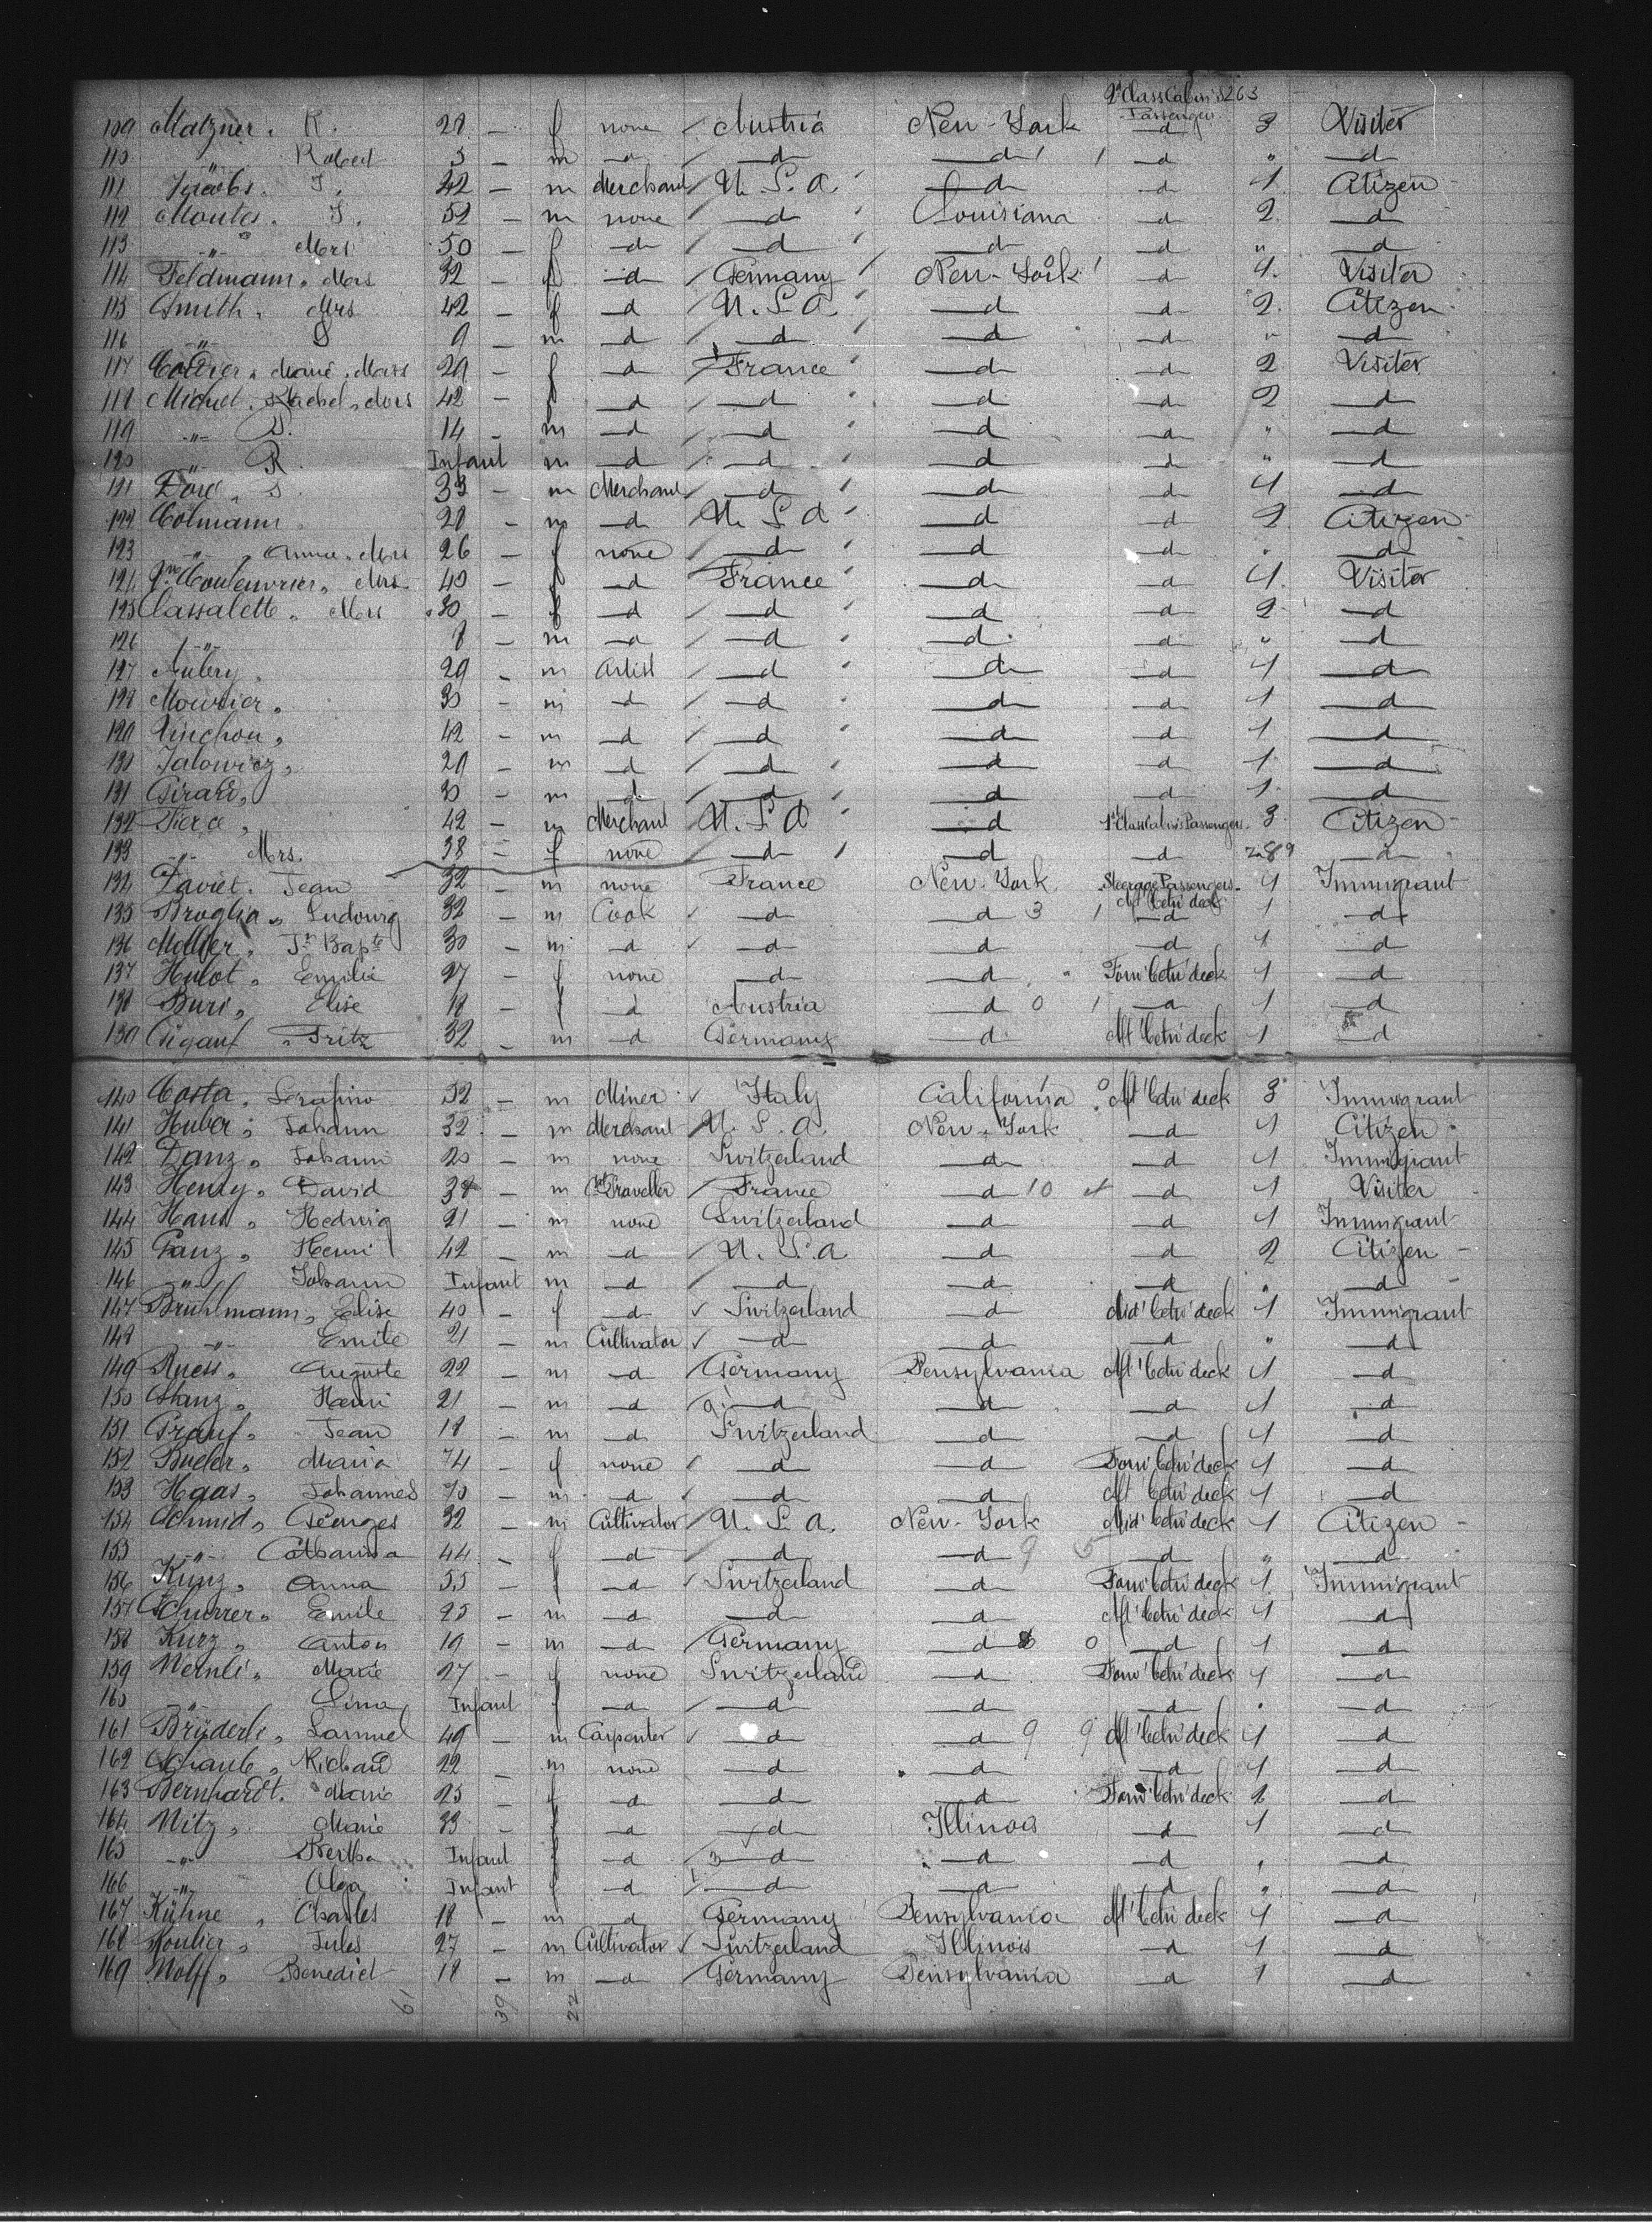 2d Class Cabin's 263
Passengers
109 Matzner. R. 28 — f none Austria New-York —d— 3 Visitor
110 —"— Robert 3 — m —d— —d— —d— —d— " —d—
111 Jacobs. J. 42 — m Merchant U. S. A. —d— —d— 1 Citizen
112 Montes. J. 52 — m none —d— Louisiana —d— 2 —d—
113 —"— Mrs 50 — f —d— —d— —d— —d— " —d—
114 Feldmann, Mrs 32 — f —d— Germany New-York —d— 4 Visitor
115 Smith, Mrs 42 — f —d— U. S. A. —d— —d— 2 Citizen
116 —"— S 9 — m —d— —d— —d— —d— " —d—
117 Marie, Mrs 29 — f —d— France —d— —d— 2 Visitor
118 Rachel, Mrs 42 — f —d— —d— —d— —d— 2 —d—
119 —"— 14 — m —d— —d— —d— —d— " —d—
120 —"— R. Infant m —d— —d— —d— —d— " —d—
121 Doré, S. 33 — m Merchant —d— —d— —d— 4 —d—
122 Colmann 28 — m —d— U. S. A —d— —d— 2 Citizen
123 —"— Anna, Mrs 26 — f none —d— —d— —d— " —d—
124 Mrs 40 — f —d— France —d— —d— 4 Visitor
125 Cassalette, Mrs 30 — f —d— —d— —d— —d— 2 —d—
126 —"— 8 — m —d— —d— —d— —d— " —d—
127 Aubery, 29 — m Artist —d— —d— —d— 1 —d—
128 Mourier, 30 — m —d— —d— —d— —d— 1 —d—
129 Pinchon, 42 — m —d— —d— —d— —d— 1 —d—
130 Jalowicz, 29 — m —d— —d— —d— —d— 1 —d—
131 Girard, 30 — m —d— —d— —d— —d— 1 —d—
132 Pierce, 42 — m Merchant U. S. A —d— 1st Class Cabin's Passengers 3 Citizen
133 —"— Mrs. 38 — f none —d— —d— —d— —d—
134 Daviet. Jean 32 — m none France New-York Steerage Passengers 1 Immigrant
Aft betw' deck
135 Broglia, Ludovig 32 — m Cook —d— —d— 3 1 —d— 1 —d—
136 Mollier, Jn Bapte 30 — m —d— —d— —d— —d— 1 —d—
137 Hulot, Emilie 27 — f none —d— —d— Forw' betw' deck 1 —d—
138 Buri, Elise 18 — f —d— Austria —d— 0 1 —d— 1 —d—
139 Fritz 32 — m —d— Germany —d— Aft' betw' deck 1 —d—
140 Costa, Serafino 32 — m Miner Italy California Aft' betw' deck 3 Immigrant
141 Huber, Johann 32 — m Merchant U. S. A. New-York —d— 1 Citizen
142 Danz, Johann 20 — m none Switzerland —d— —d— 1 Immigrant
143 Henry, David m Traveller France —d— 10 —d— 1 Visitor
144 Haus, Hedwig 21 — m none Switzerland —d— —d— 1 Immigrant
145 Ganz, Henri 42 — m —d— U. S. A —d— —d— 2 Citizen
146 —"— Johann Infant m —d— —d— —d— —d— " —d—
147 Bruhlmann, Elise 40 — f —d— Switzerland —d— Mid' betw' deck 1 Immigrant
148 —"— Emile 21 — m Cultivator —d— —d— —d— " —d—
149 Ruess, Auguste 22 — m —d— Germany Pensylvania Aft' betw' deck 1 —d—
150 Stanz, Henri 21 — m —d— —d— —d— —d— 1 —d—
151 Grauf, Jean 18 — m —d— Switzerland —d— —d— 1 —d—
152 Bueler, Maria 74 — f none —d— —d— Forw' betw' deck 1 —d—
153 Haas, Johannes 70 — m —d— —d— —d— Aft' betw' deck 1 —d—
154 Schmid, Georges 32 — m Cultivator U. S. A. New-York Mid' betw' deck 1 Citizen
155 —"— Catharina 44 — f —d— —d— —d— 9 5 —d— " —d—
156 Kunz, Anna 55 — f —d— Switzerland —d— Forw' betw' deck 1 Immigrant
157 Schurrer, Emile 25 — m —d— —d— —d— Aft' betw' deck 1 —d—
158 Kurz, Anton 19 — m —d— Germany —d— 0 —d— 1 —d—
159 Wernli, Marie 27 — f none Switzerland —d— Forw' betw' deck 1 —d—
160 —"— Lina Infant f —d— —d— —d— —d— " —d—
161 Brüderli, Samuel 49 — m Carpenter —d— —d— 9 9 Aft' betw' deck 1 —d—
162 Schaub, Richard 22 — m none —d— —d— —d— 1 —d—
163 Bernhardt. Marie 25 — f —d— —d— —d— Forw' betw' deck 2 —d—
164 Witz, Marie 33 — f —d— —d— Illinois —d— 1 —d—
165 —"— Bertha Infant f —d— 3 —d— —d— —d— " —d—
166 —"— Olga Infant f —d— —d— —d— —d— " —d—
167 Kühne, Charles 18 — m —d— Germany Pensylvania Aft' betw' deck 1 —d—
168 Moulier, Jules 27 — m Cultivator Switzerland Illinois —d— 1 —d—
169 Wolff, Benedict 18 — m —d— Germany Pensylvania —d— 1 —d—
61 39 22